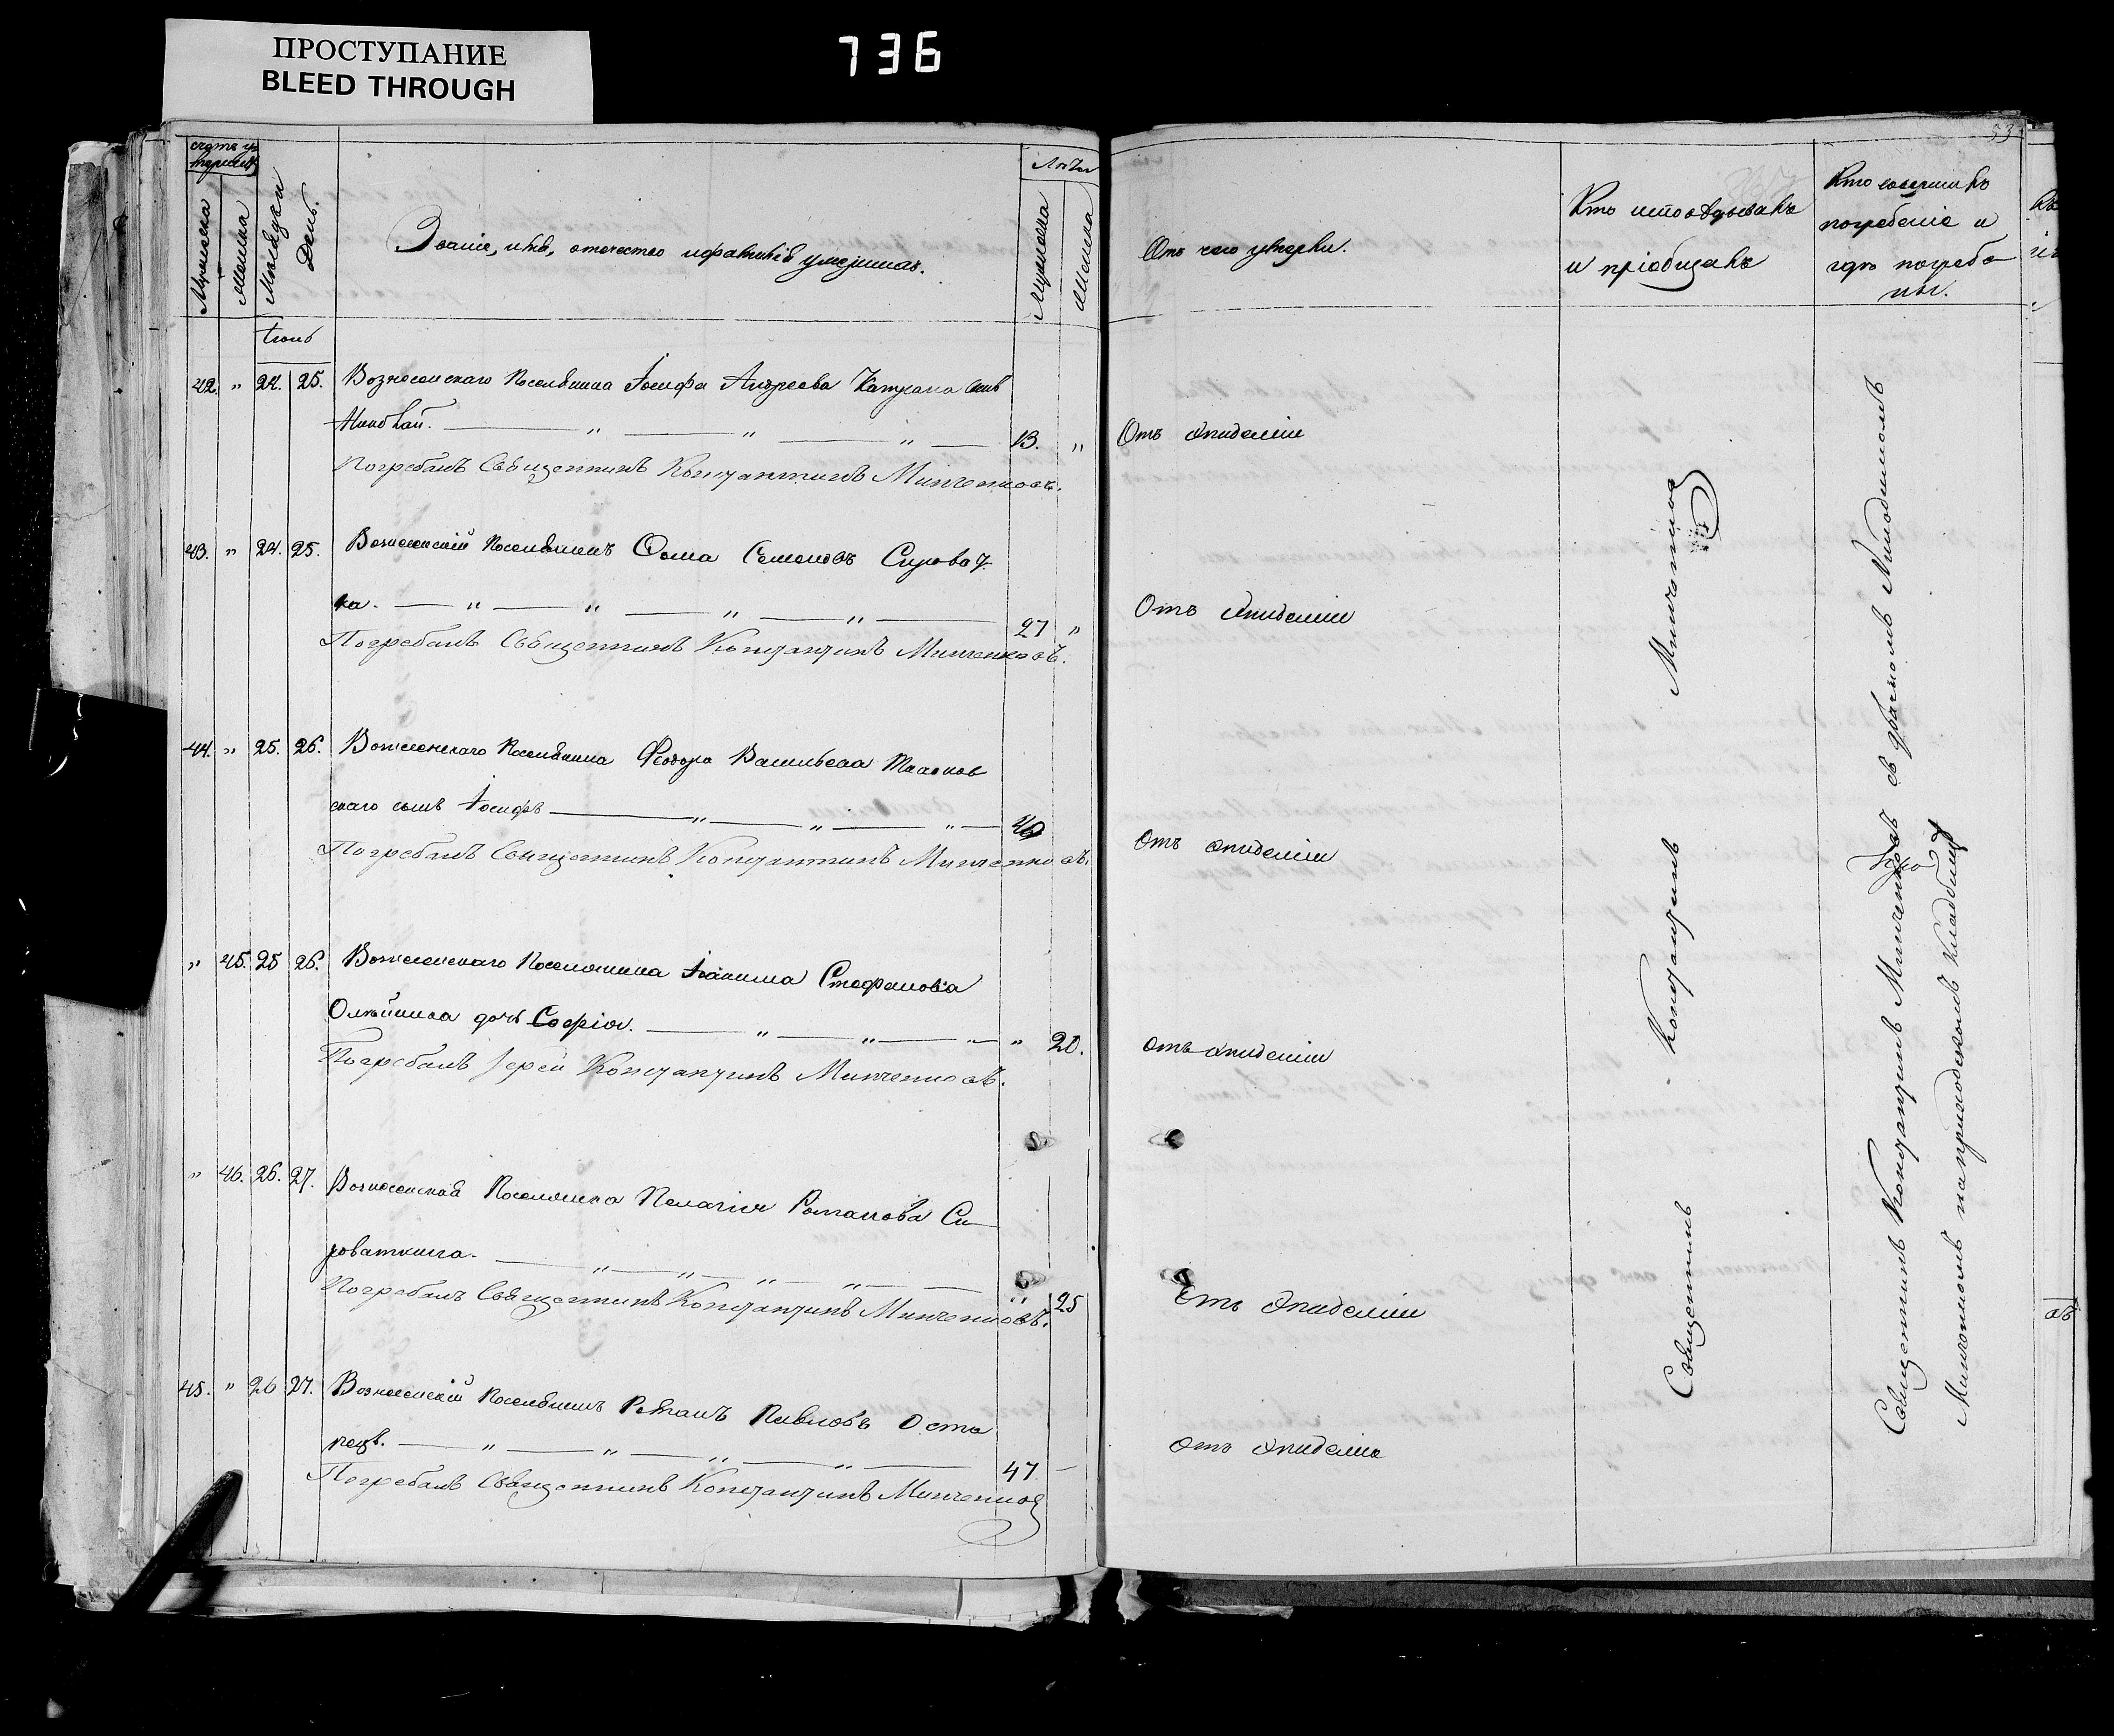 ПРОСТУПАНИЕ
BLEED THROUGH
736
53
счетъ у
мершихъ
Мужеска
Женска
Мѣсяцъ и
День.
Званіе, имя, отечество и фамилія умершихъ.
Лѣта
Мужеска
Женска
Отъ чего умерли.
Кто исповѣдывалъ
и пріобщалъ
Кто совершилъ
погребеніе и
гдѣ погребе
ны.
Іюнь
42. " 24. 25. Вознесенскаго Поселянина Іосифа Андреева Катрана сынъ
Николай. " " " 13. "
Отъ эпидеміи
Погребалъ Священникъ Константинъ Минченковъ.
43. " 24. 25. Вознесенскій Поселянинъ Ѳома Семеновъ Сироват
ка. " " " " 27 "
Отъ эпидеміи
Погребалъ Священникъ Константинъ Минченковъ.
44. " 25. 26. Вознесенскаго Поселянина Феодора Васильева
скаго сынъ Іосифъ " " "
Отъ эпидеміи
Погребалъ Священникъ Константинъ Минченковъ.
" 45. 25 26. Вознесенскаго Поселянина Іоакима Стефанова
Олейника дочь Софія. " " " " 20.
Отъ эпидеміи
Погребалъ Іерей Константинъ Минченковъ.
" 46. 26. 27. Вознесенская Поселянка Пелагія Романова Си
роваткина. " " " " " 25
Отъ эпидеміи
Погребалъ Священникъ Константинъ Минченковъ.
45. " 26 27. Вознесенскій Поселянинъ Романъ Павловъ Оста
пецъ. " " " " 47. —
Отъ эпидеміи
Погребалъ Священникъ Константинъ Минченков
Священникъ Константинъ Минченков
Священникъ Константинъ Минченковъ съ Дьячкомъ
на приходскомъ кладбищѣ